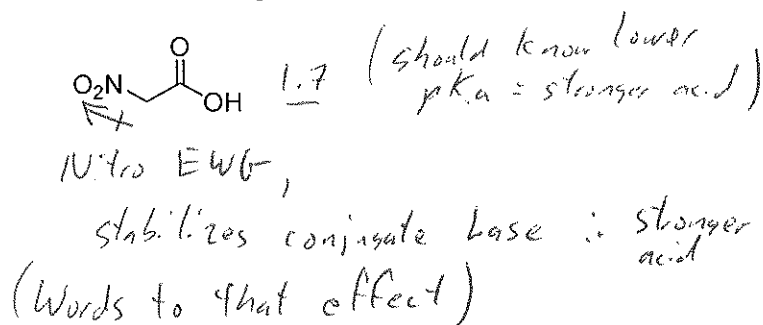 O
O₂N OH 1.7 (should know lower
pKa = stronger acid)
Nitro EWG,
stabilizes conjugate base ∴ stronger
acid
(Words to that effect)